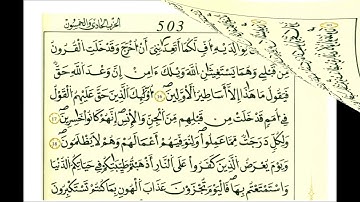 الحزب الحادي والخمسون 503
لوالديه أف لكما أتعدانني أن أخرج وقد خلت القرون
من قبلي وهما يستغيثان الله ويلك ءامن إن وعد الله حق
فيقول ما هذا إلا أساطير الأولين ١٧ أولئك الذين حق عليهم القول
في أمم قد خلت من قبلهم من الجن والإنس إنهم كانوا خاسرين ١٨
ولكل درجات مما عملوا ولنوفيهم أعمالهم وهم لا يظلمون ١٩
ويوم يعرض الذين كفروا على النار أذهبتم طيباتكم في حياتكم الدنيا
واستمتعتم بها فاليوم تجزون عذاب الهون بما كنتم تستكبرون